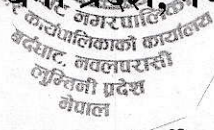 नगरपालिका
कार्यपालिकाको कार्यालय
बर्दघाट, नवलपरासी
लुम्बिनी प्रदेश
नेपाल